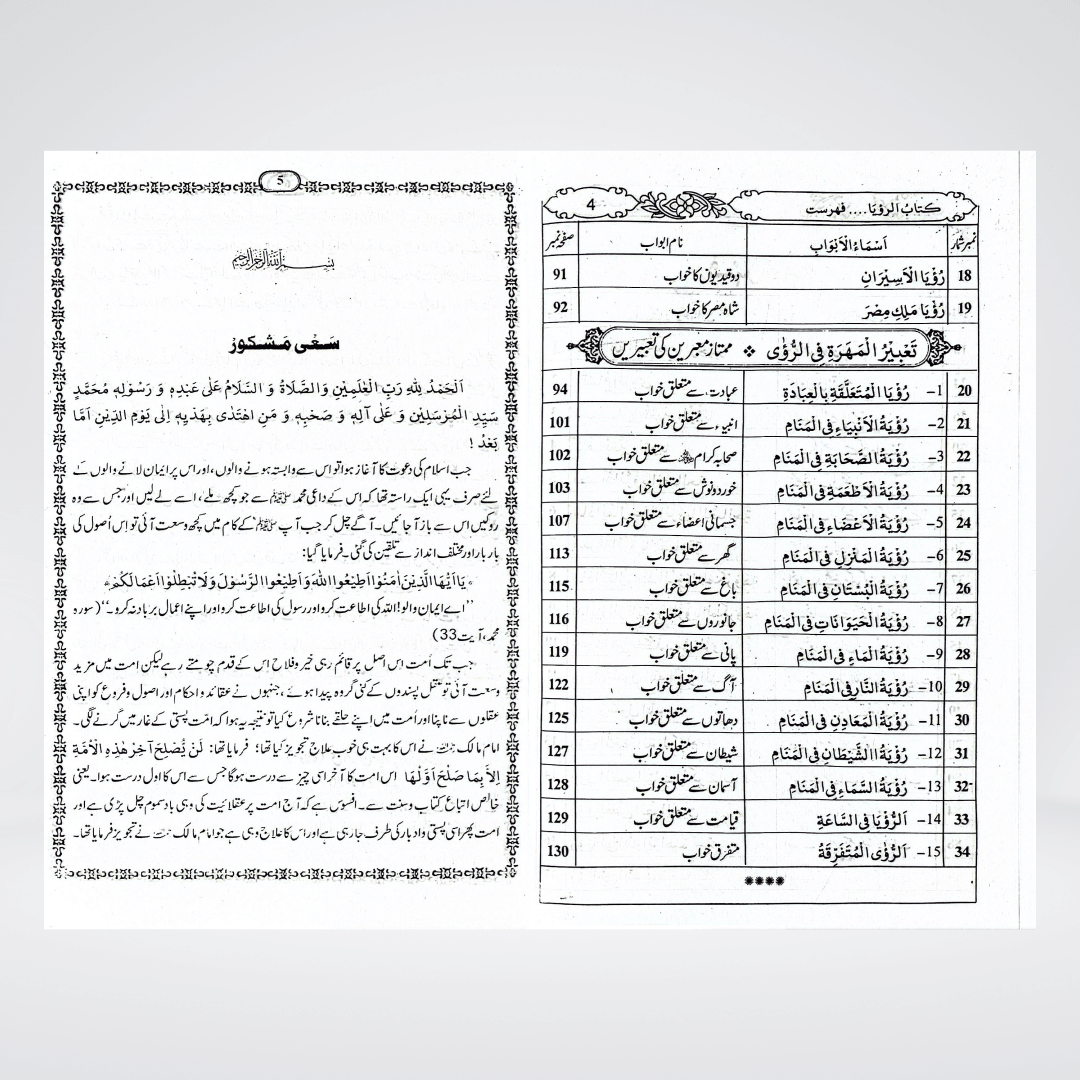 4
کتابُ الرؤیا.... فهرست
نمبر شمار اَسْمَاءُ الْاَبْوَاب نام ابواب صفحہ نمبر
18 رُؤْيَا الْاَسِيْرَانِ دو قیدیوں کا خواب 91
19 رُؤْيَا مَلِكِ مِصْرَ شاہ مصر کا خواب 92
تَعْبِيْرُ الْمَهَرَةِ فِى الرُّؤٰى ❖ ممتاز معبرین کی تعبیریں
20 1- رُؤْيَا الْمُتَعَلَّقَةِ بِالْعِبَادَةِ عبادت، سے متعلق خواب 94
21 2- رُؤْيَةُ الْاَنْبِيَاءِ فِى الْمَنَامِ انبیاء سے متعلق خواب 101
22 3- رُؤْيَةُ الصَّحَابَةِ فِى الْمَنَامِ صحابہ کرام رضی اللہ عنہم سے متعلق خواب 102
23 4- رُؤْيَةُ الْاَطْعَمَةِ فِى الْمَنَامِ خورد و نوش سے متعلق خواب 103
24 5- رُؤْيَةُ الْاَعْضَاءِ فِى الْمَنَامِ جسمانی اعضاء سے متعلق خواب 107
25 6- رُؤْيَةُ الْمَنْزِلِ فِى الْمَنَامِ گھر سے متعلق خواب 113
26 7- رُؤْيَةُ الْبُسْتَانِ فِى الْمَنَامِ باغ سے متعلق خواب 115
27 8- رُؤْيَةُ الْحَيَوَانَاتِ فِى الْمَنَامِ جانوروں سے متعلق خواب 116
28 9- رُؤْيَةُ الْمَاءِ فِى الْمَنَامِ پانی سے متعلق خواب 119
29 10- رُؤْيَةُ النَّارِ فِى الْمَنَامِ آگ سے متعلق خواب 122
30 11- رُؤْيَةُ الْمَعَادِنِ فِى الْمَنَامِ دھاتوں سے متعلق خواب 125
31 12- رُؤْيَةُ االشَّيْطَانِ فِى الْمَنَامِ شیطان سے متعلق خواب 127
32 13- رُؤْيَةُ السَّمَاءِ فِى الْمَنَامِ آسمان سے متعلق خواب 128
33 14- اَلرُّؤْيَا فِى السَّاعَةِ قیامت سے متعلق خواب 129
34 15- اَلرُّؤَى الْمُتَفَرِّقَةُ متفرق خواب 130
5
بسم الله الرحمن الرحيم
سَعْى مَشكور
اَلْحَمْدُ لِلّٰهِ رَبِّ الْعٰلَمِيْنَ وَ الصَّلَاةُ وَ السَّلَامُ عَلٰى عَبْدِهٖ وَ رَسُوْلِهٖ مُحَمَّدٍ
سَيِّدِ الْمُرْسَلِيْنَ وَ عَلٰى آلِهٖ وَ صَحْبِهٖ وَ مَنِ اهْتَدٰى بِهَدْيِهٖ اِلٰى يَوْمِ الدِّيْنِ اَمَّا
بَعْدُ !
جب اسلام کی دعوت کا آغاز ہوا تو اس سے وابستہ ہونے والوں، اور اس پر ایمان لانے والوں کے
لئے صرف یہی ایک راستہ تھا کہ اس کے داعی محمد ﷺ سے جو کچھ ملے، اسے لے لیں اور جس سے وہ
روکیں اس سے باز آ جائیں۔ آگے چل کر جب آپ ﷺ کے کام میں کچھ وسعت آئی تو اس اُصول کی
بار بار اور مختلف انداز سے تلقین کی گئی۔ فرمایا گیا:
﴿يَا اَيُّهَا الَّذِيْنَ اٰمَنُوْا اَطِيْعُوا اللّٰهَ وَ اَطِيْعُوا الرَّسُوْلَ وَلَا تُبْطِلُوْا اَعْمَالَكُمْ﴾
’’اے ایمان والو! اللہ کی اطاعت کرو اور رسول کی اطاعت کرو اور اپنے اعمال برباد نہ کرو۔‘‘ (سورہ
محمد، آیت 33)
جب تک اُمت اس اصل پر قائم رہی خیر و فلاح اس کے قدم چومتے رہے لیکن امت میں مزید
وسعت آئی تو عقل پسندوں کے کئی گروہ پیدا ہوئے، جنہوں نے عقائد و احکام اور اصول و فروع کو اپنی
عقلوں سے ناپنا اور اُمت میں اپنے حلقے بنانا شروع کیا تو نتیجہ یہ ہوا کہ امت پستی کے غار میں گرنے لگی۔
امام مالک رحمہ اللہ نے اس کا بہت ہی خوب علاج تجویز کیا تھا؛ فرمایا تھا: لَنْ يُّصْلِحَ آخِرَ هٰذِهِ الْاُمَّةِ
اِلاَّ بِمَا صَلَحَ اَوَّلُهَا اس امت کا آخر اسی چیز سے درست ہوگا جس سے اس کا اول درست ہوا۔ یعنی
خالص اتباع کتاب و سنت سے۔ افسوس ہے کہ آج امت پر عقلانیت کی وہی باد سموم چل پڑی ہے اور
امت پھر اسی پستی و ادبار کی طرف جا رہی ہے اور اس کا علاج وہی ہے جو امام مالک رحمہ اللہ نے تجویز فرمایا تھا۔